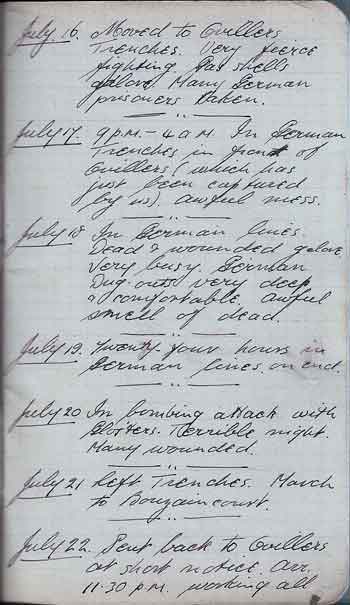 July 16. Moved to Ovillers
Trenches. Very fierce
fighting. Gas shells
galore. Many German
prisoners taken.
July 17. 9 p.m. - 4 a.m. In German
Trenches in front of
Ovillers (which has
just been captured
by us). Awful mess.
July 18 In German lines.
Dead & wounded galore.
Very busy. German
Dug-outs very deep
& comfortable. Awful
smell of dead.
July 19. Twenty four hours in
German lines on end.
July 20 In bombing attack with
Glosters. Terrible night.
Many wounded.
July 21 Left Trenches. March
to Bouzaincourt.
July 22. Sent back to Ovillers
at short notice. Arr.
11.30 P.M. working all